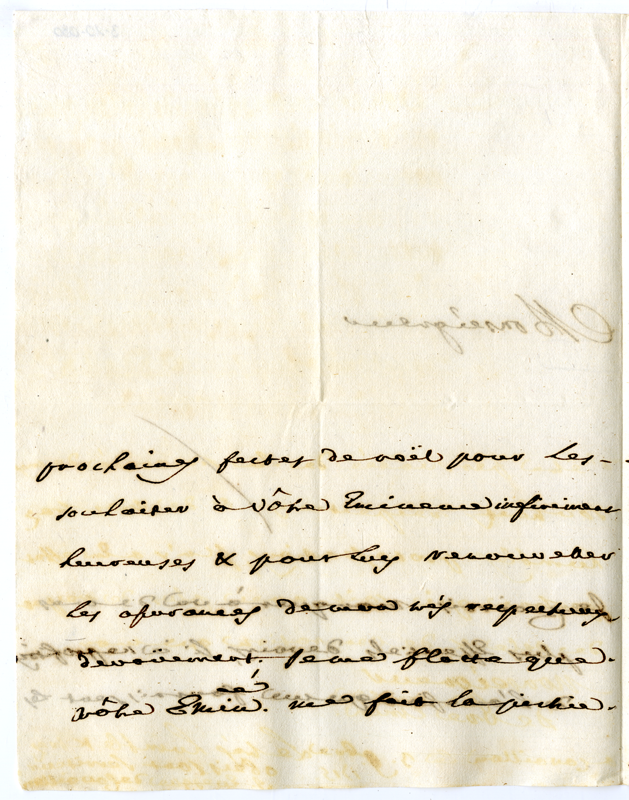 prochaines festes de noël pour Les-
souhaiter à vôtre Eminence infiniment
heureuses & pour Luy renouveller
les assurances de mon trés respectueux
devoüement. Je me flatte que
vôtre Emin.ce me fait la justice
Monseigneur